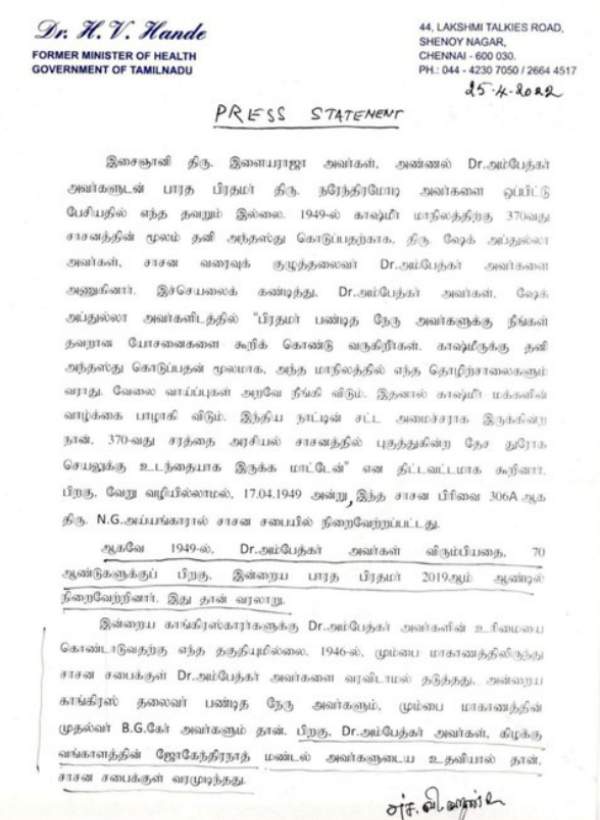 Dr. H. V. Hande
FORMER MINISTER OF HEALTH
GOVERNMENT OF TAMILNADU
44, LAKSHMI TALKIES ROAD,
SHENOY NAGAR,
CHENNAI - 600 030.
PH.: 044 - 4230 7050 / 2664 4517
25.4.2022
PRESS STATEMENT
இசைஞானி திரு. இளையராஜா அவர்கள், அண்ணல் Dr.அம்பேத்கர்
அவர்களுடன் பாரத பிரதமர் திரு. நரேந்திரமோடி அவர்களை ஒப்பிட்டு
பேசியதில் எந்த தவறும் இல்லை. 1949-ல் காஷ்மீர் மாநிலத்திற்கு 370வது
சாசனத்தின் மூலம் தனி அந்தஸ்து கொடுப்பதற்காக, திரு. ஷேக் அப்துல்லா
அவர்கள், சாசன வரைவுக் குழுத்தலைவர் Dr.அம்பேத்கர் அவர்களை
அணுகினார். இச்செயலைக் கண்டித்து, Dr.அம்பேத்கர் அவர்கள், ஷேக்
அப்துல்லா அவர்களிடத்தில் "பிரதமர் பண்டித நேரு அவர்களுக்கு நீங்கள்
தவறான யோசனைகளை கூறிக் கொண்டு வருகிறீர்கள். காஷ்மீருக்கு தனி
அந்தஸ்து கொடுப்பதன் மூலமாக, அந்த மாநிலத்தில் எந்த தொழிற்சாலைகளும்
வராது. வேலை வாய்ப்புகள் அறவே நீங்கி விடும். இதனால் காஷ்மீர் மக்களின்
வாழ்க்கை பாழாகி விடும். இந்திய நாட்டின் சட்ட அமைச்சராக இருக்கின்ற
நான், 370-வது சரத்தை அரசியல் சாசனத்தில் புகுத்துகின்ற தேச துரோக
செயலுக்கு உடந்தையாக இருக்க மாட்டேன்" என திட்டவட்டமாக கூறினார்.
பிறகு, வேறு வழியில்லாமல், 17.04.1949 அன்று, இந்த சாசன பிரிவை 306A ஆக
திரு. N.G.அய்யங்காரால் சாசன சபையில் நிறைவேற்றப்பட்டது.
ஆகவே 1949-ல், Dr.அம்பேத்கர் அவர்கள் விரும்பியதை, 70
ஆண்டுகளுக்குப் பிறகு, இன்றைய பாரத பிரதமர் 2019ஆம் ஆண்டில்
நிறைவேற்றினார். இது தான் வரலாறு.
இன்றைய காங்கிரஸ்காரர்களுக்கு Dr.அம்பேத்கர் அவர்களின் உரிமையை
கொண்டாடுவதற்கு எந்த தகுதியுமில்லை. 1946-ல், மும்பை மாகாணத்திலிருந்து
சாசன சபைக்குள் Dr.அம்பேத்கர் அவர்களை வரவிடாமல் தடுத்தது, அன்றைய
காங்கிரஸ் தலைவர் பண்டித நேரு அவர்களும், மும்பை மாகாணத்தின்
முதல்வர் B.G.கேர் அவர்களும் தான். பிறகு, Dr.அம்பேத்கர் அவர்கள், கிழக்கு
வங்காளத்தின் ஜோகேந்திரநாத் மண்டல் அவர்களுடைய உதவியால் தான்,
சாசன சபைக்குள் வரமுடிந்தது.